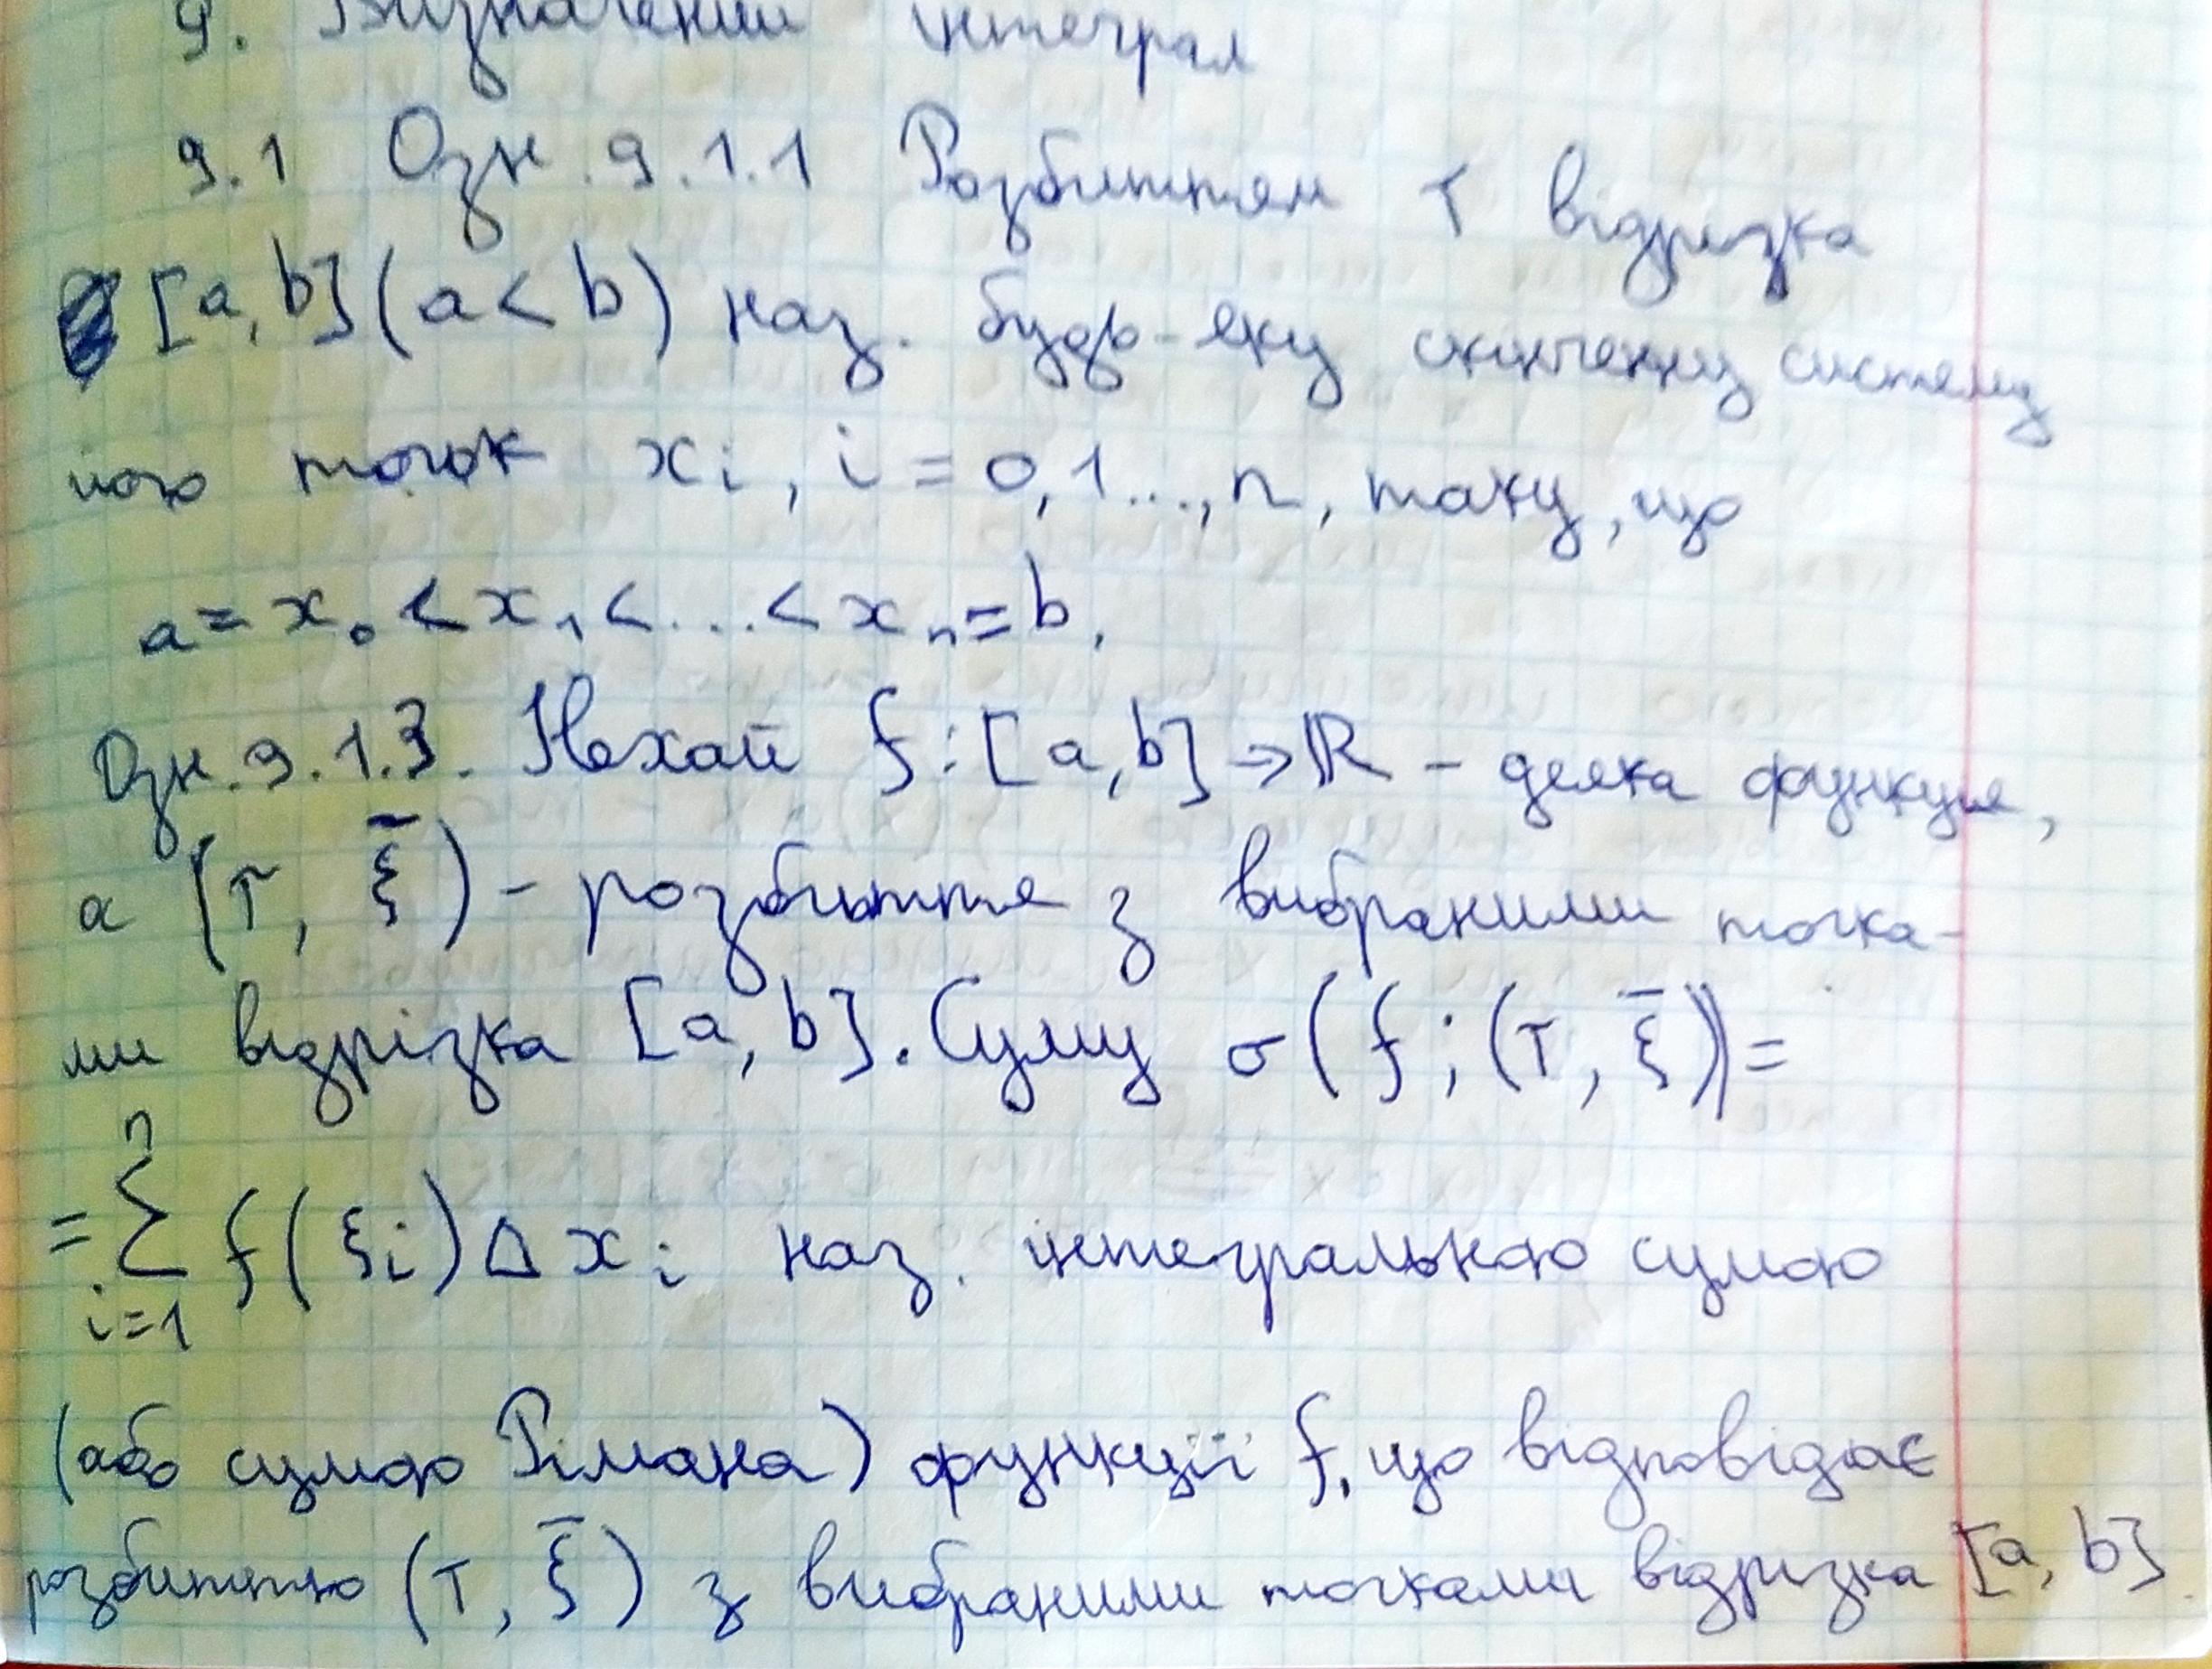 9. Визначений інтеграл
9.1 Озн. 9.1.1 Розбиттям T відрізка
[a, b] (a < b) наз. будь-яку скінченну систему
його точок xᵢ, i = 0, 1..., n, таку, що
a = x₀ < x₁ < ... < xₙ = b.
Озн. 9.1.3. Нехай f : [a, b] → ℝ - деяка функція,
а (T, ξ̄) - розбиття з вибраними точка-
ми відрізка [a, b]. Суму σ(f; (T, ξ̄)) =
= ∑ⁿᵢ₌₁ f(ξᵢ) Δxᵢ наз. інтегральною сумою
(або сумою Рімана) функції f, що відповідає
розбиттю (T, ξ̄) з вибраними точками відрізка [a, b]